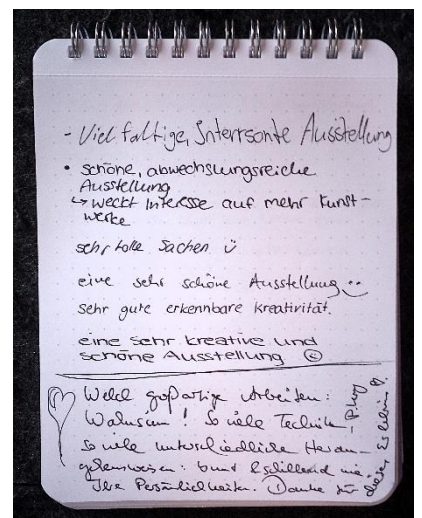 - Vielfältige, Interrsante Ausstellung
• schöne, abwechslungsreiche
Ausstellung
↳ weckt Interesse auf mehr Kunst-
werke
sehr tolle Sachen ü
eine sehr schöne Ausstellung
sehr gute erkennbare Kreativität.
eine sehr kreative und
schöne Ausstellung ☺
Welch großartige Arbeiten:
Wahnsinn! So viele Techniken
so viele unterschiedliche Heran-
gehensweisen: bunt & schillernd wie
Ihre Persönlichkeiten. Danke für
dieses Erleben